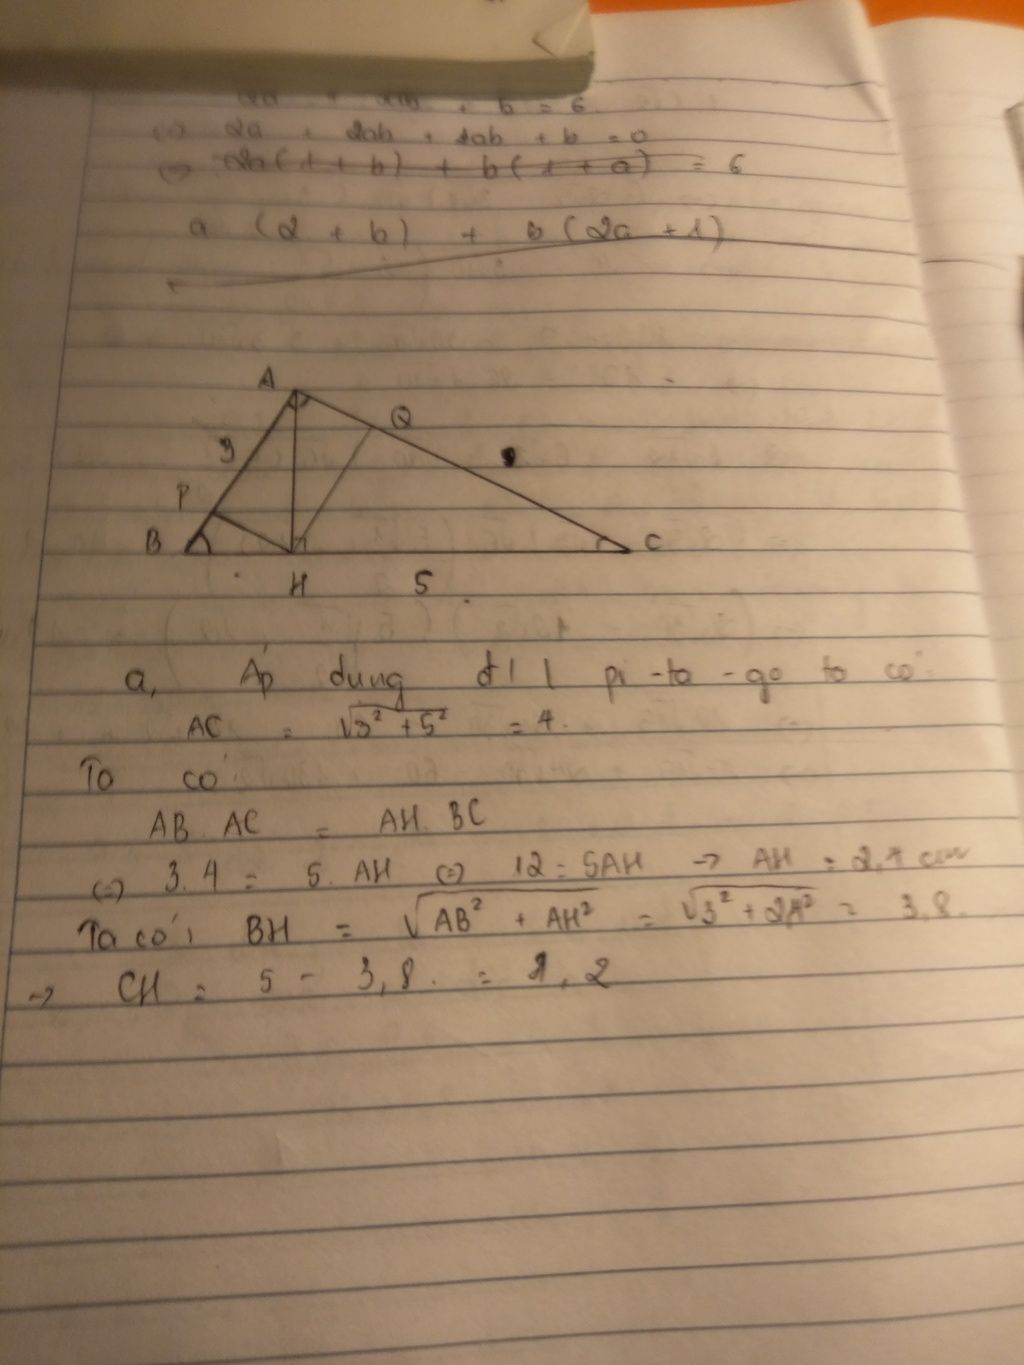 2a + 2ab + b = 6
(=) 2a + 2ab + 2ab + b = 0
(=) 2a(1 + b) + b(1 + a) = 6
a (2 + b) + b (2a + 1)
A
Q
3
P
B
C
H 5
a, Áp dụng đ l l pi-ta-go ta có
AC = √3² + 5² = 4.
Ta có
AB . AC = AH. BC
(=) 3. 4 = 5. AH (=) 12 = 5AH → AH = 2,4 cm
Ta có: BH = √AB² + AH² = √3² + 2,4² = 3,8.
→ CH = 5 - 3,8. = 1,2